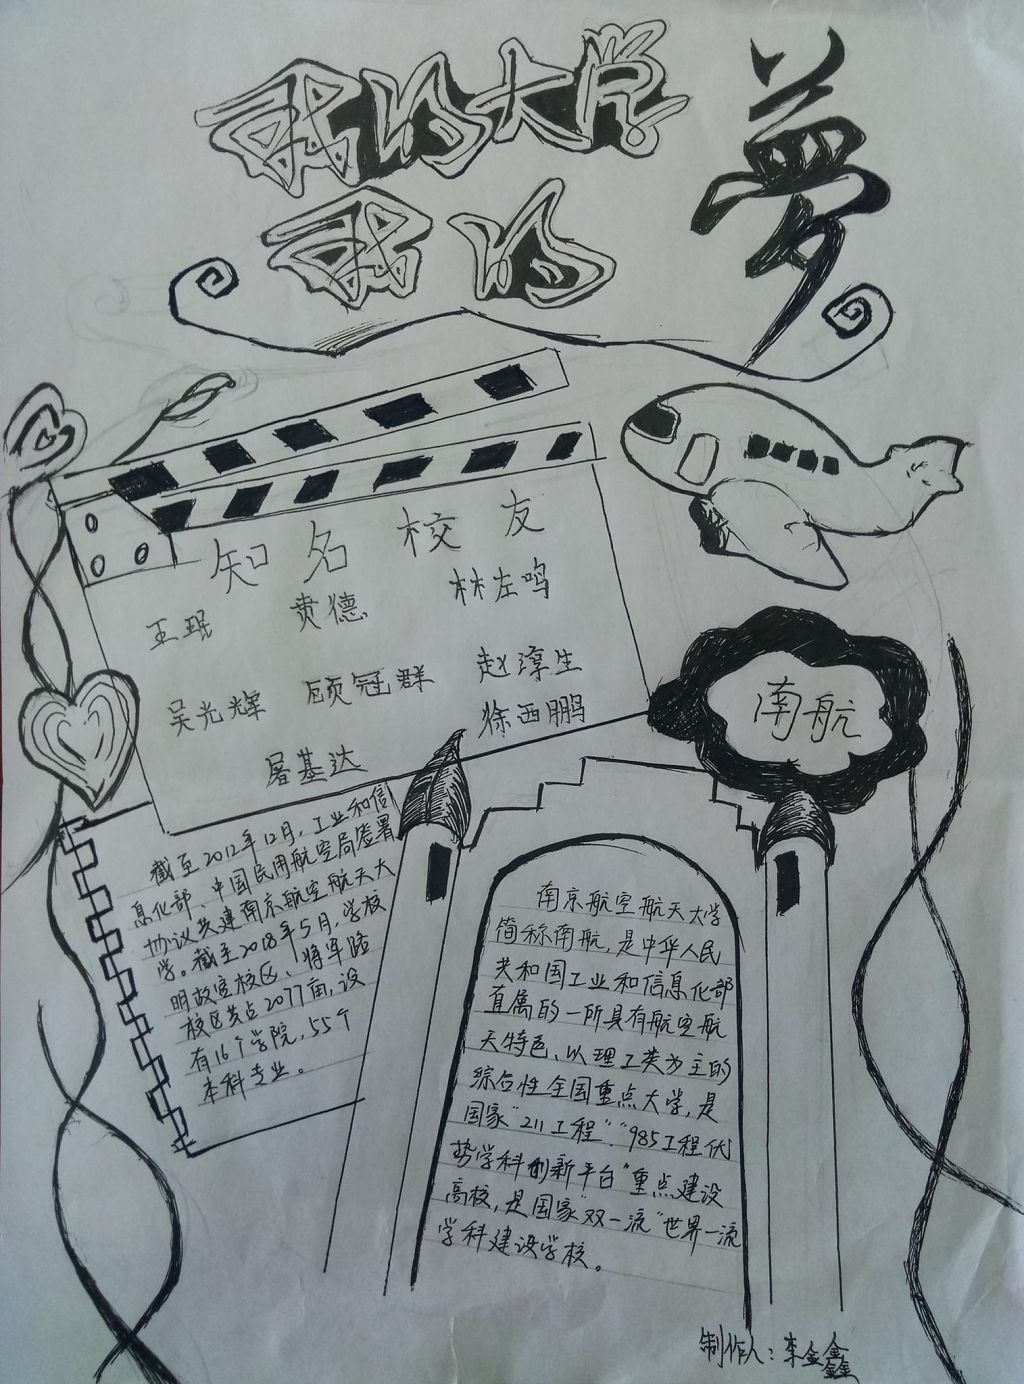 我的大学
我的
梦
知名校友
王珉 贲德 林左鸣
吴光辉 顾冠群 赵淳生
徐西鹏
屠基达
南航
截至2012年12月,工业和信
息化部、中国民用航空局签署
协议共建南京航空航天大
学。截至2018年5月,学校
明故宫校区、将军路
校区共占2077亩,设
有16个学院,55个
本科专业。
南京航空航天大学
简称南航,是中华人民
共和国工业和信息化部
直属的一所具有航空航
天特色、以理工类为主的
综合性全国重点大学,是
国家"211工程"、"985工程优
势学科创新平台"重点建设
高校,是国家"双一流"世界一流
学科建设学校。
制作人:李金鑫